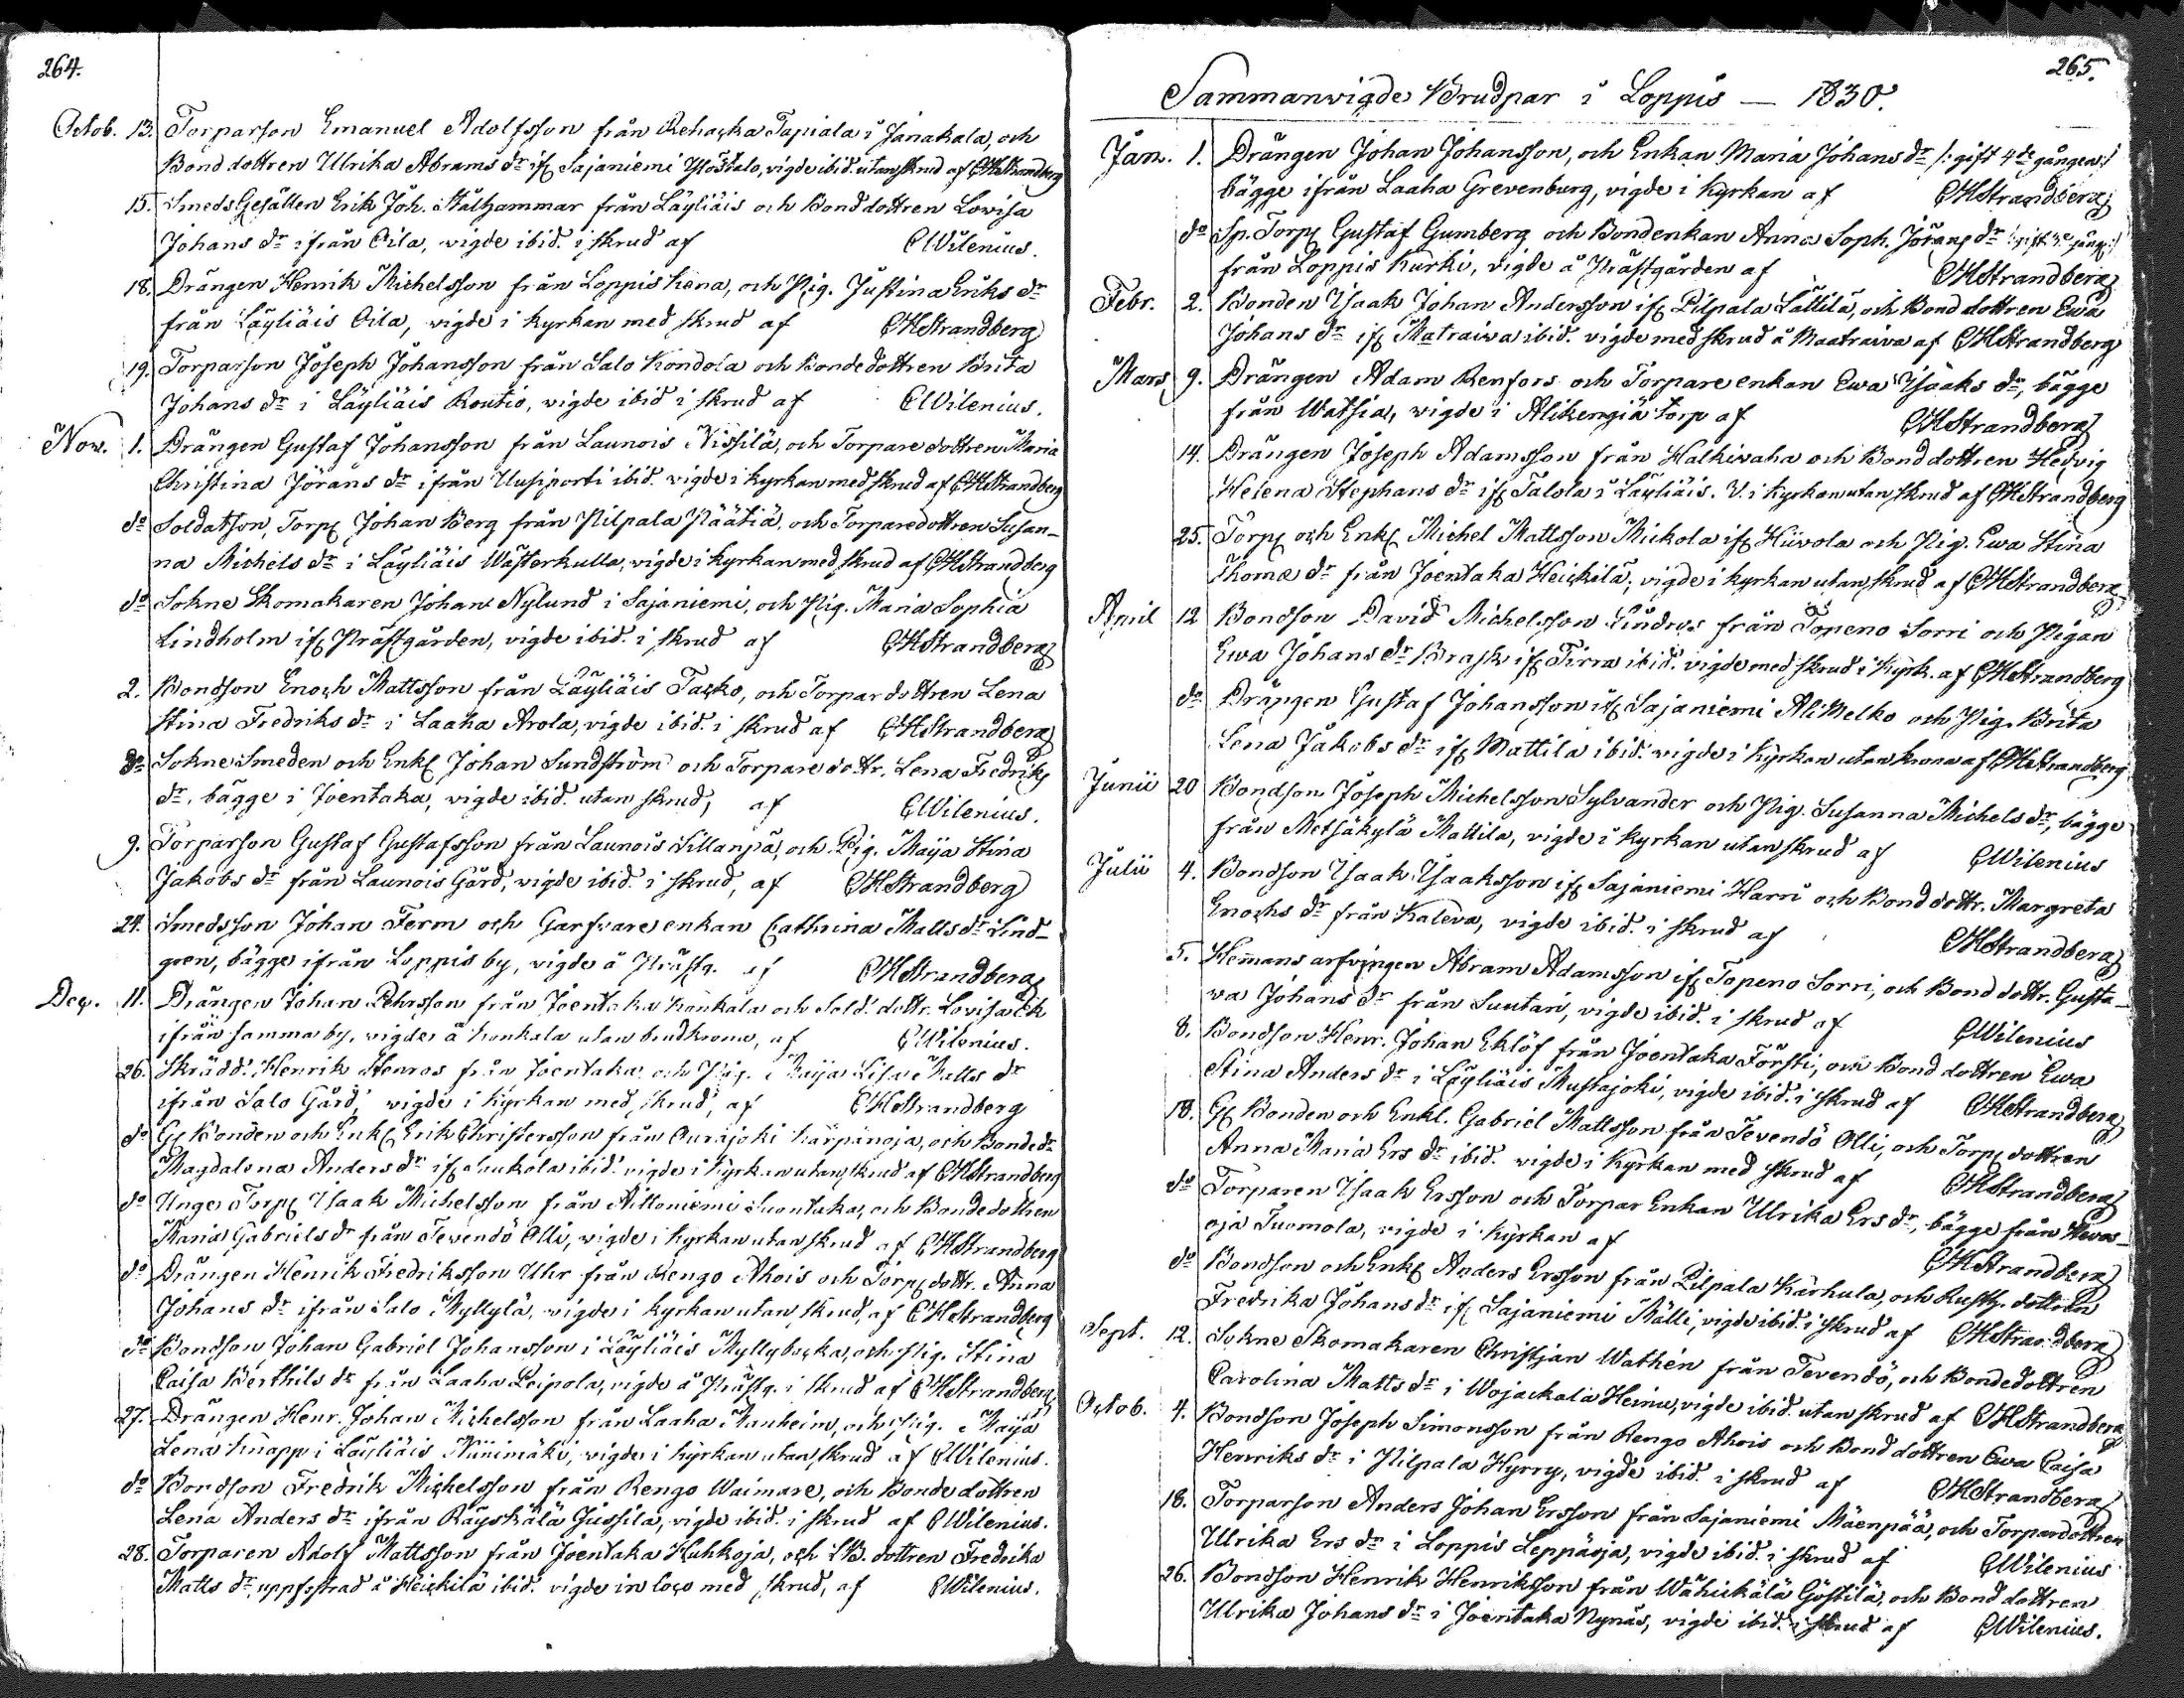 264.
Octob. 13. Torparson Emanuel Adolfsson från Rehacka Tapiala i Janakala, och
Bond dottren Ulrika Abrams dr ifr Sajaniemi Ylöstalo, vigde ibid. utan skrud af CHStrandberg
15. Smeds Gesällen Erik Joh. Stålhammar från Läyliäis och Bond dottren Lovisa
Johans dr ifrån Oila, vigde ibid. i skrud af CWilenius.
18. Drängen Henrik Michelsson från Loppis Kena, och Pig. Justina Eriks dr
från Läyliäis Oila, vigde i Kyrkan med skrud af CHStrandberg
19. Torparson Joseph Johansson från Salo Kondola och Bonde dottren Brita
Johans dr i Läyliäis Routio, vigde ibid i skrud af CWilenius.
Nov. 1. Drängen Gustaf Johansson från Launois Nissilä, och Torpare dottren Maria
Christina Jörans dr ifrån Uusiporti ibid. vigde i Kyrkan med skrud af CHStrandberg
do Soldatson, Torp Johan Berg från Pilpala Päätiä, och Torparedottren Susan-
na Michels dr i Läyliäis Wästerkulla, vigde i Kyrkan med skrud af CHStrandberg
do Sokne Skomakaren Johan Nylund i Sajaniemi, och Pig. Maria Sophia
Lindholm ifr Prästgården, vigde ibid. i skrud af CHStrandberg
2. Bondson Enoch Mattsson från Läyliäis Tacko, och Torpar dottren Lena
Stina Fredriks dr i Laaha Arola, vigde ibid. i skrud af CHStrandberg
do Sokne Smeden och Enkl Johan Sundström och Torpare dottr. Lena Fredriks
dr, bägge i Joentaka, vigde ibid. utan skrud, af CWilenius.
9. Torparson Gustaf Gustafsson från Launois Sillanpä, och Pig. Maija Stina
Jakobs dr från Launois Gård, vigde ibid. i skrud, af CHStrandberg
24. Smedsson Johan Ferm och Garfvare enkan Cathrina Matts dr Lind-
gren, bägge ifrån Loppis by, vigde å Prästg. af CHStrandberg
Dec. 11. Drängen Johan Pehrsson från Joentaka Konkala och Sold. dottr. Lovisa Ek
ifrån samma by, vigde å Konkala utan brudkrona, af CWilenius.
26. Skrädd. Henrik Stenros från Joentaka och Pig. Maija Lisa Matts dr
ifrån Salo Gård, vigde i Kyrkan med skrud, af CHStrandberg
do Bonden och Enkl Erik Christersson från Ourajoki Kärpänoja, och Bonde dr
Magdalena Anders dr ifr Luukola ibid. vigde i Kyrkan utan skrud af CHStrandberg
do Unge Torp Isaak Michelsson från Ailloniemi Suontaka, och Bondedottren
Maria Gabriels dr från Tevendö Olli, vigde i Kyrkan utan skrud af CHStrandberg
do Drängen Henrik Fredriksson Uhr från Rengo Ahois och Torp dottr. Anna
Johans dr ifrån Salo Myllylä, vigde i Kyrkan utan skrud, af CHStrandberg
do Bondson Johan Gabriel Johansson i Läyliäis Myllybacka, och Pig. Stina
Caisa Berthils dr från Laaha Leipola, vigde å Prästg. i skrud af CHStrandberg
27. Drängen Henr. Johan Michelsson från Laaha Manheim, och Pig. Maija
Lena Knapp i Läyliäis Niinimäki, vigde i Kyrkan utan skrud af CWilenius.
do Bondson Fredrik Michelsson från Rengo Waimare, och Bonde dottren
Lena Anders dr ifrån Räyskälä Jussila, vigde ibid. i skrud af CWilenius.
28. Torparen Adolf Mattsson från Joentaka Huhkoja, och dottren Fredrika
Matts dr uppfostrad å Heickilä ibid. vigde in loco med skrud, af CWilenius.
265.
Sammanvigde Brudpar i Loppis — 1830.
Jan. 1. Drängen Johan Johansson, och Enkan Maria Johans dr /: gift 4de gången :/
bägge ifrån Laaha Grevenburg, vigde i Kyrkan af CHStrandberg
do Sp. Torp Gustaf Gumberg och Bondenkan Anna Soph. Jörans dr
från Loppis Kurki, vigde å Prästgården af CHStrandberg
Febr. 2. Bonden Isaak Johan Andersson ifr Pilpala Lättilä, och Bond dottren Ewa
Johans dr ifr Matraiva ibid. vigde med skrud å Maatraiva af CHStrandberg
Mars 9. Drängen Adam Renfors och Torpare enkan Ewa Isaaks dr, bägge
från Watsia, vigde i Alikengiä torp af CHStrandberg
14. Drängen Joseph Adamsson från Halkivaha och Bond dottren Hedvig
Helena Stephans dr ifr Talola i Läyliäis. V. i Kyrkan utan skrud af CHStrandberg
25. Torp och Enkl Michel Mattsson Mickola ifr Hiivola och Pig. Ewa Stina
Thomæ dr från Joentaka Heickilä, vigde i Kyrkan utan skrud af CHStrandberg
April 12 Bondson David Michelsson Lindros från Topeno Sorri och Pigan
Ewa Johans dr Brask ifr Tirra ibid. vigde med skrud i Kyrk. af CHStrandberg
do Drängen Gustaf Johansson ifr Sajaniemi AliNelko och Pig. Brita
Lena Jakobs dr ifr Mattila ibid. vigde i Kyrkan utan krona af CHStrandberg
Junii 20 Bondson Joseph Michelsson Sylvander och Pig. Susanna Michels dr, bägge
från Metsäkylä Mattila, vigde i Kyrkan utan skrud af CWilenius
Julii 4. Bondson Isaak Isaaksson ifr Sajaniemi Harri och Bond dottr. Margreta
Enochs dr från Kaleva, vigde ibid. i skrud af CHStrandberg
5. Hemans arfvingen Abram Adamsson ifr Topeno Sorri, och Bond dottr. Gusta-
va Johans dr från Suutari, vigde ibid. i skrud af CWilenius
8. Bondson Henr. Johan Eklöf från Joentaka Försti, och Bond dottren Ewa
Stina Anders dr i Läyliäis Mustajoki, vigde ibid. i skrud af CHStrandberg
18. Bonden och Enkl. Gabriel Mattsson från Tevendö Olli, och Torp dottren
Anna Maria Ers dr ibid. vigde i Kyrkan med skrud af CHStrandberg
do Torparen Isaak Ersson och Torpar Enkan Ulrika Ers dr, bägge från Hevos-
oja Tuomola, vigde i Kyrkan af CHStrandberg
do Bondson och Enkl Anders Ersson från Pilpala Karhula, och Rusth. dottren
Fredrika Johans dr ifr Sajaniemi Mälli, vigde ibid. i skrud af CHStrandberg
Sept. 12. Sokne Skomakaren Christjan Wathén från Tevendö, och Bondedottren
Carolina Matts dr i Wojackala Heinu, vigde ibid. utan skrud af CHStrandberg
Octob. 4. Bondson Joseph Simonsson från Rengo Ahois och Bond dottren Ewa Caisa
Henriks dr i Pilpala Hyrry, vigde ibid. i skrud af CHStrandberg
18. Torparson Anders Johan Ersson från Sajaniemi Mäenpää, och Torpardottren
Ulrika Ers dr i Loppis Leppäoja, vigde ibid. i skrud af CWilenius
26. Bondson Henrik Henriksson från Wähickälä Göstilä, och Bond dottren
Ulrika Johans dr i Joentaka Nynäs, vigde ibid. i skrud af CWilenius.